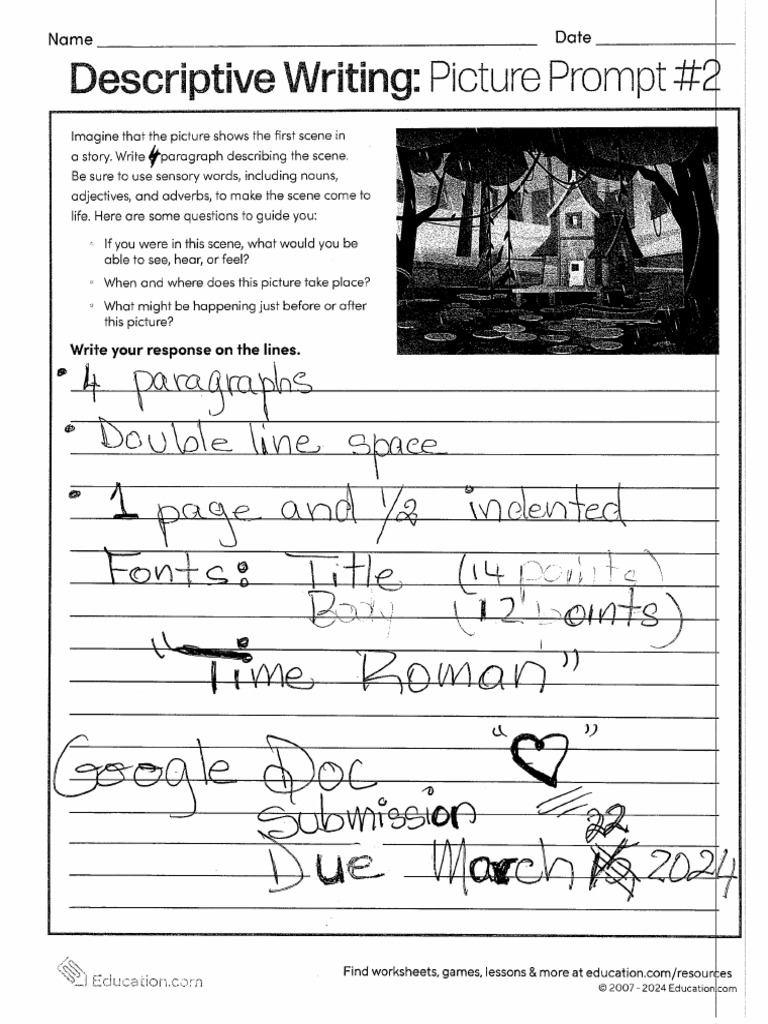 Name Date
Descriptive Writing: Picture Prompt #2
Imagine that the picture shows the first scene in
a story. Write 4 paragraph describing the scene.
Be sure to use sensory words, including nouns,
adjectives, and adverbs, to make the scene come to
life. Here are some questions to guide you:
◦ If you were in this scene, what would you be
able to see, hear, or feel?
◦ When and where does this picture take place?
◦ What might be happening just before or after
this picture?
Write your response on the lines.
• 4 paragraphs
• Double line space
• 1 page and 1/2 indented
Fonts: Title (14 points)
Body (12 points)
"Time Roman"
Google Doc " "
Submission
22
Due March 2024
Education.com
Find worksheets, games, lessons & more at education.com/resources
© 2007 - 2024 Education.com